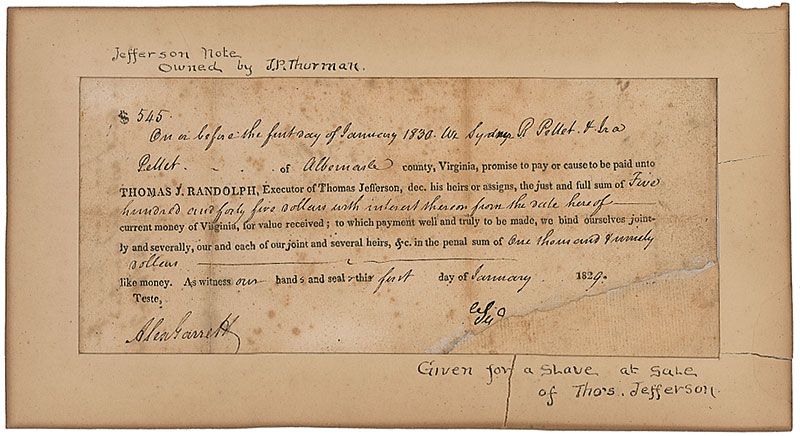 Jefferson Note
Owned by J.P. Thurman.
$ 545.
On or before the first day of January 1830. We Sydney P. Pellet & Ira
Pellet - . . of Albemarle county, Virginia, promise to pay or cause to be paid unto
THOMAS J. RANDOLPH, Executor of Thomas Jefferson, dec. his heirs or assigns, the just and full sum of Five
hundred and forty five dollars with interest thereon from the date here of
current money of Virginia, for value received; to which payment well and truly to be made, we bind ourselves joint-
ly and severally, our and each of our joint and several heirs, &c. in the penal sum of One thousand & ninety
Dollars
like money. As witness our hands and seals this first day of January 1829.
Teste,
Alex Garrett
Given for a Slave at Sale
of Thos. Jefferson.